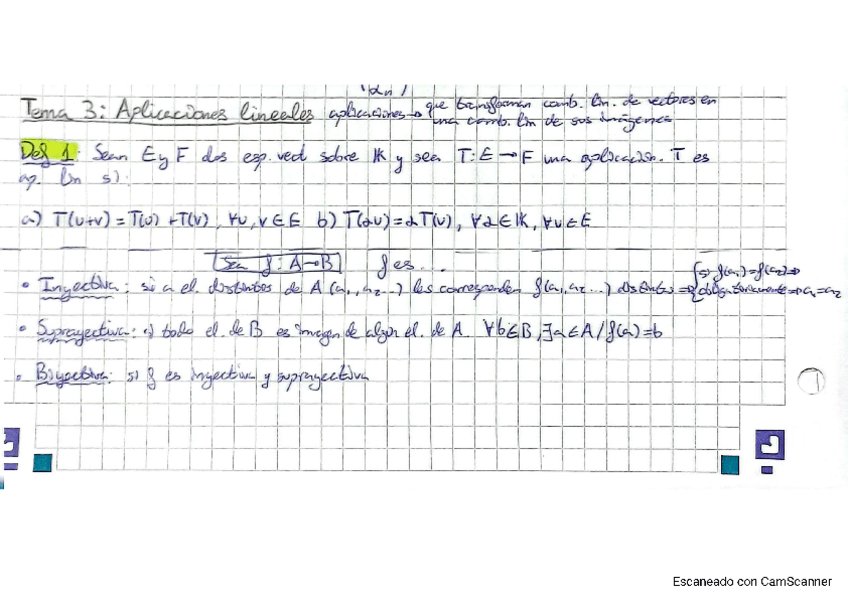 Tema 3: Aplicaciones lineales aplicaciones → que transforman comb. lin. de vectores en
una comb. lin de sus imágenes
Def 1: Sean E y F dos esp. vect sobre K y sea T: E → F una aplicación. T es
ap. lin si:
a) T(u+v) = T(u) + T(v), ∀u, v ∈ E b) T(αu) = αT(u), ∀α ∈ K, ∀u ∈ E
Sea f: A → B f es...
• Inyectiva: si a el. distintos de A (a₁, a₂...) les corresponden f(a₁, a₂...) distintos ⇒ { si f(a₁) = f(a₂) ⇒
obligatoriamente ⇒ a₁ = a₂
• Suprayectiva: si todo el. de B es imagen de algún el. de A ∀b ∈ B, ∃a ∈ A / f(a) = b
• Biyectiva: si f es inyectiva y suprayectiva
1
Escaneado con CamScanner